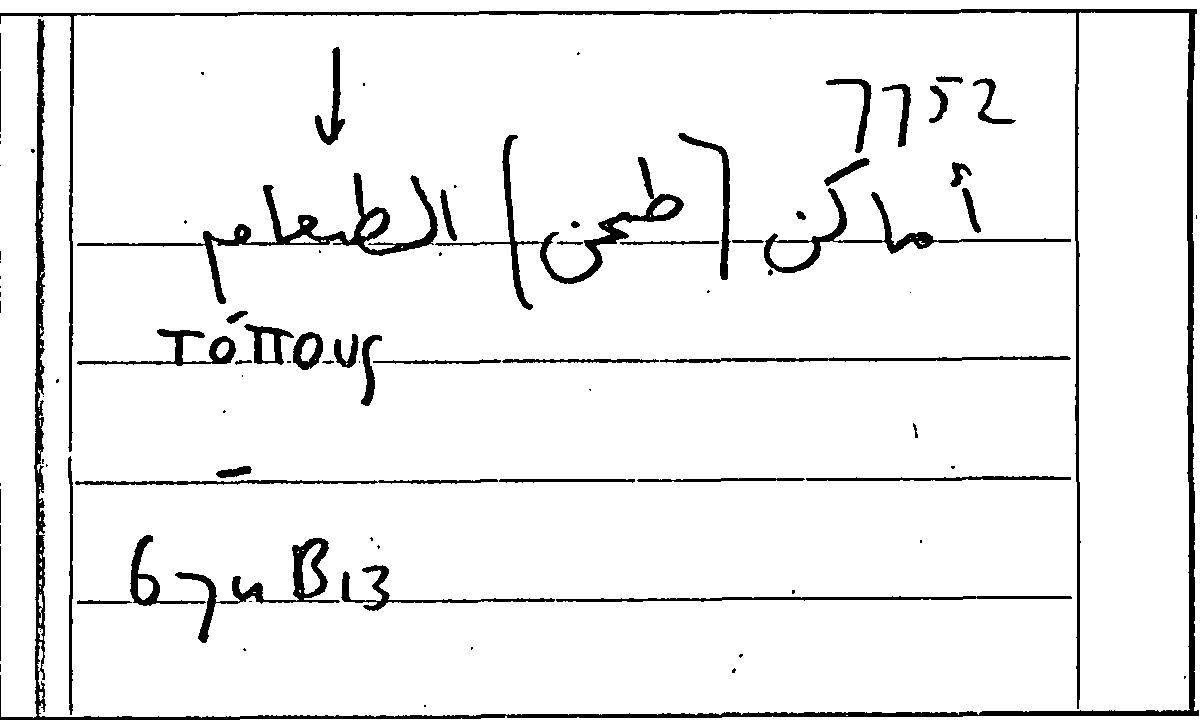 7752
أماكن [طحن] الطعام
τόπους
–
674 B13